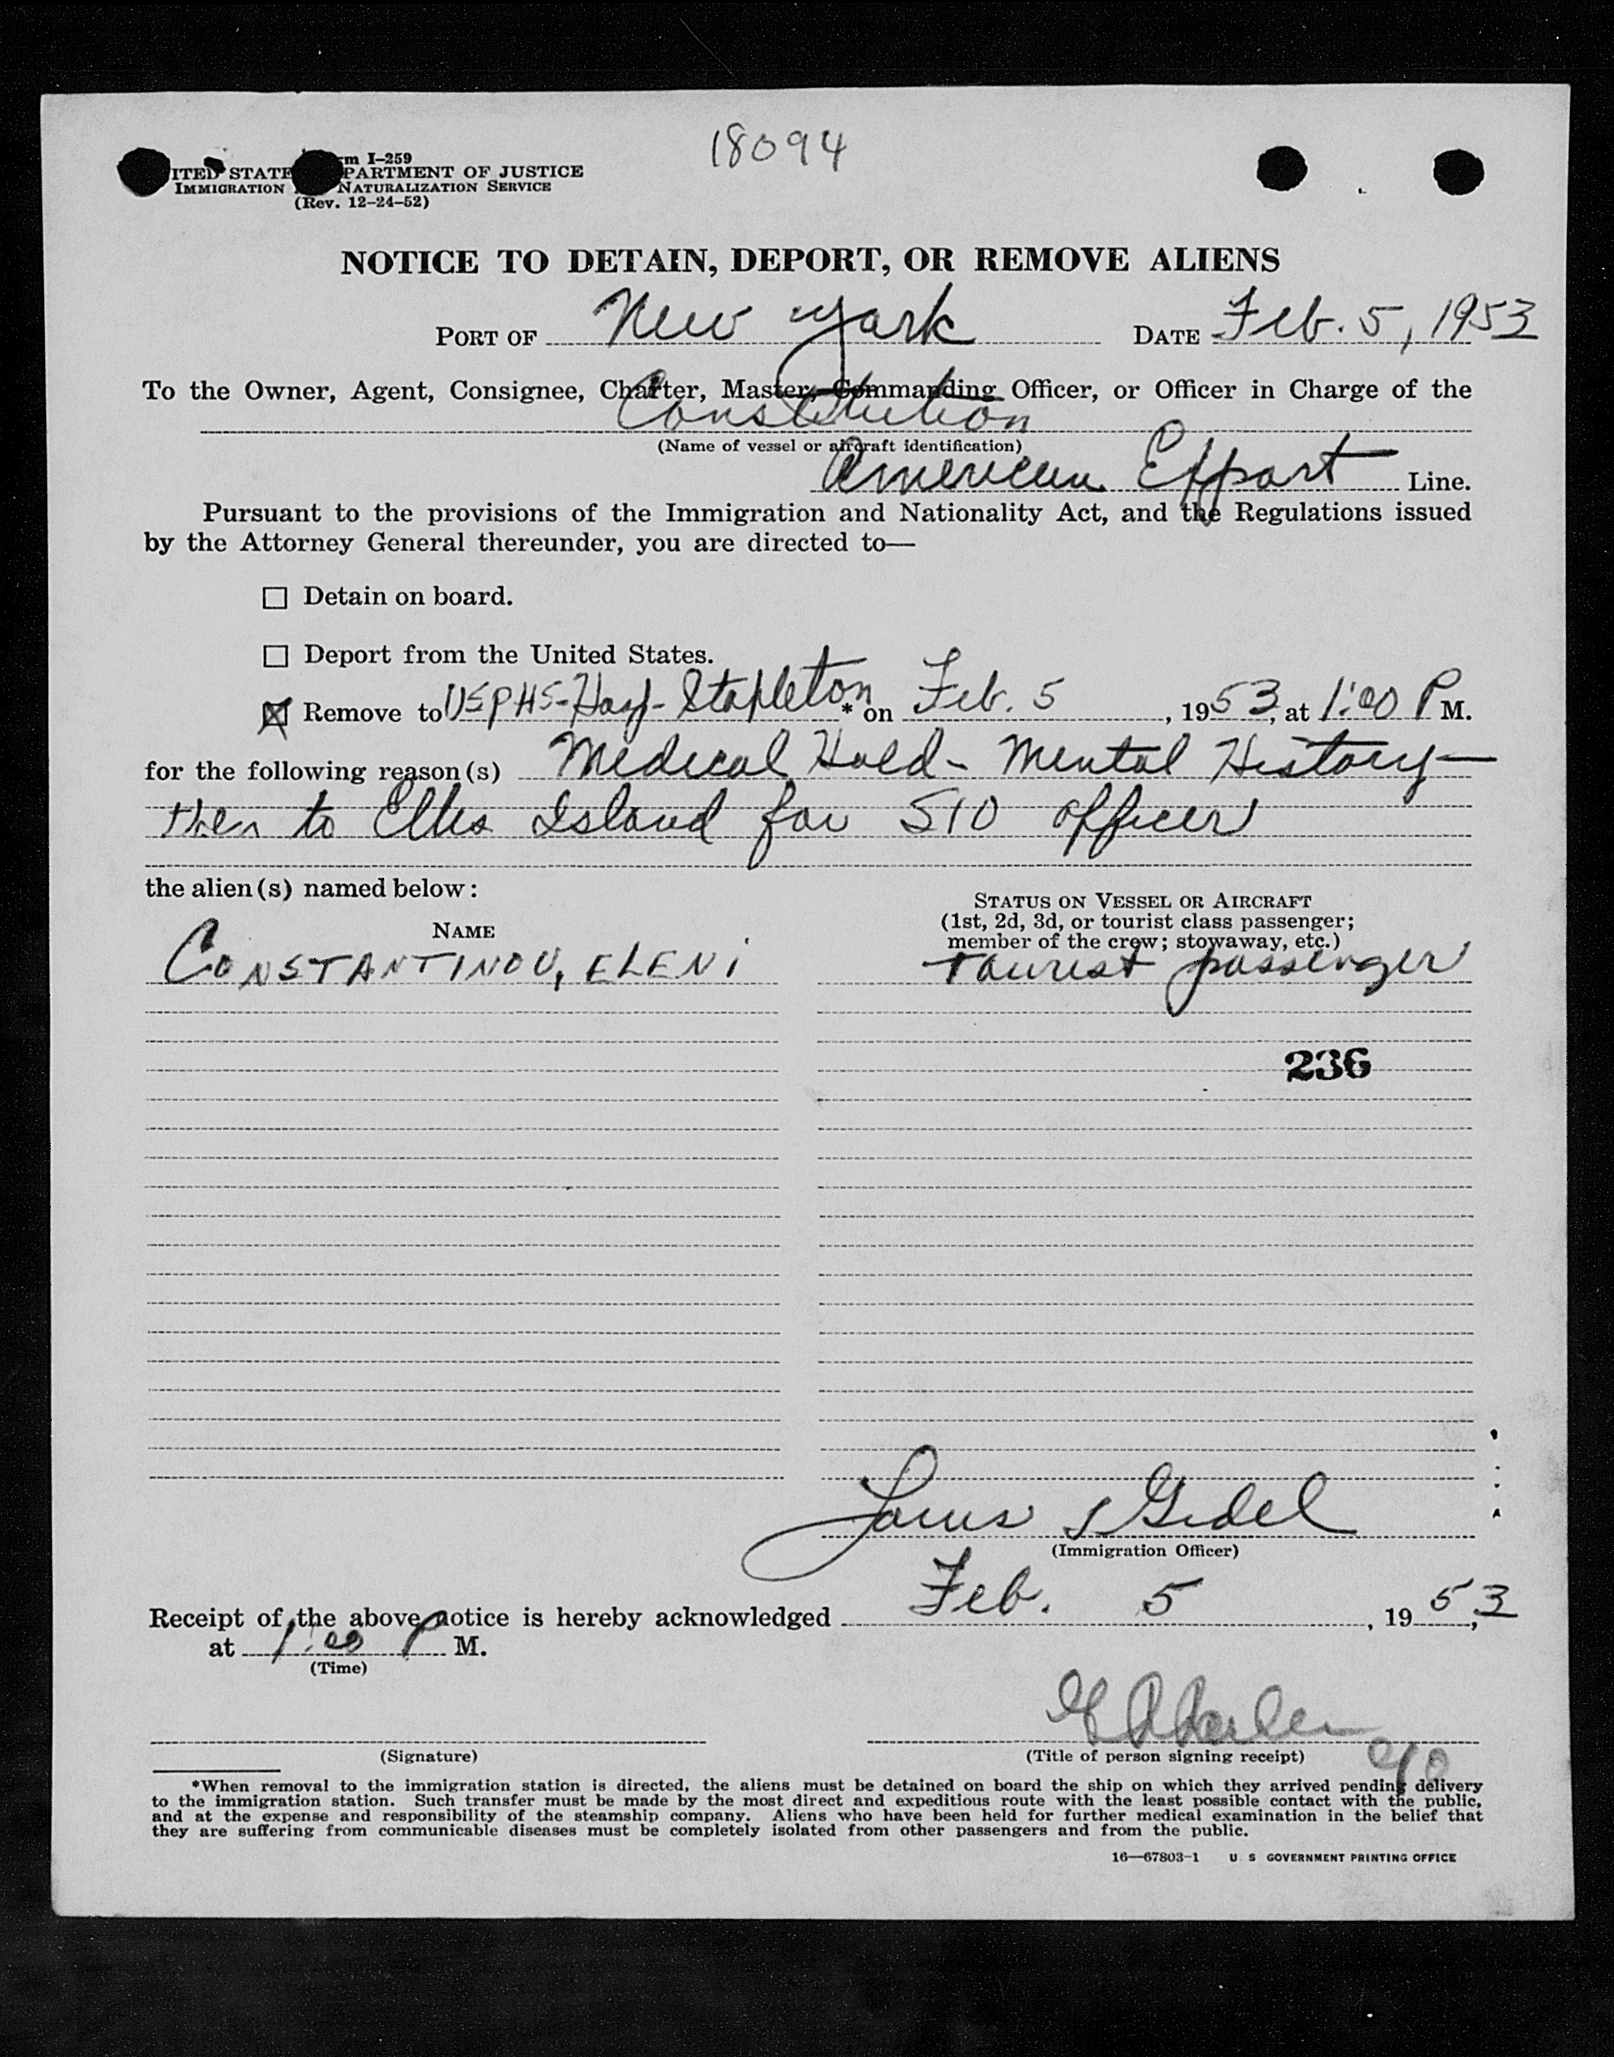 18094
rm I-259
ITED STATE PARTMENT OF JUSTICE
IMMIGRATION NATURALIZATION SERVICE
(Rev. 12-24-52)
NOTICE TO DETAIN, DEPORT, OR REMOVE ALIENS
PORT OF New York DATE Feb. 5, 1953
To the Owner, Agent, Consignee, Charter, Master, Commanding Officer, or Officer in Charge of the
Constitution
(Name of vessel or aircraft identification)
American Export Line.
Pursuant to the provisions of the Immigration and Nationality Act, and the Regulations issued
by the Attorney General thereunder, you are directed to—
☐ Detain on board.
☐ Deport from the United States.
☒ Remove to USPHS-Hosp- Stapleton * on Feb. 5, 1953, at 1:00 P M.
for the following reason(s) Medical Hold- Mental History—
then to Ellis Island for SIO officer
the alien(s) named below:
NAME
STATUS ON VESSEL OR AIRCRAFT
(1st, 2d, 3d, or tourist class passenger;
member of the crew; stowaway, etc.)
CONSTANTINOU, ELENI tourist passenger
236
Louis S Gidel
(Immigration Officer)
Receipt of the above notice is hereby acknowledged Feb. 5, 1953,
at 1:00 P M.
(Time)
(Signature)
(Title of person signing receipt)
*When removal to the immigration station is directed, the aliens must be detained on board the ship on which they arrived pending delivery
to the immigration station. Such transfer must be made by the most direct and expeditious route with the least possible contact with the public,
and at the expense and responsibility of the steamship company. Aliens who have been held for further medical examination in the belief that
they are suffering from communicable diseases must be completely isolated from other passengers and from the public.
16—67803-1 U S GOVERNMENT PRINTING OFFICE